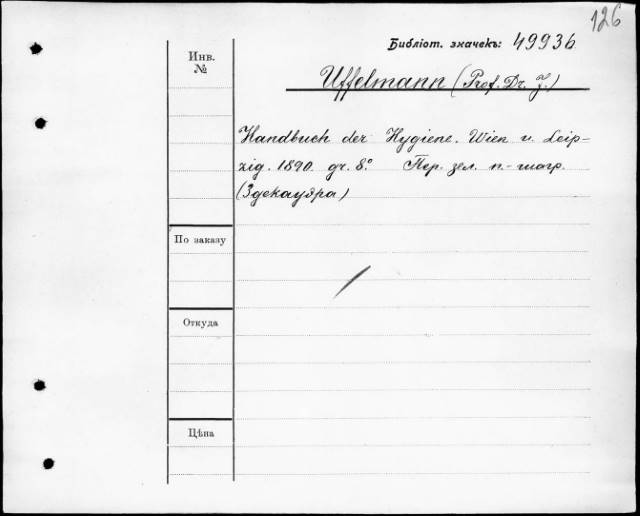 126
Библіот. значекъ: 49936
Инв.
№
Uffelmann (Prof. Dr. J.)
Handbuch der Hygiene. Wien u. Leip-
zig. 1890. gr. 8º. Пер. зел. п.-шагр.
(Здекауэра)
По заказу
Откуда
Цѣна